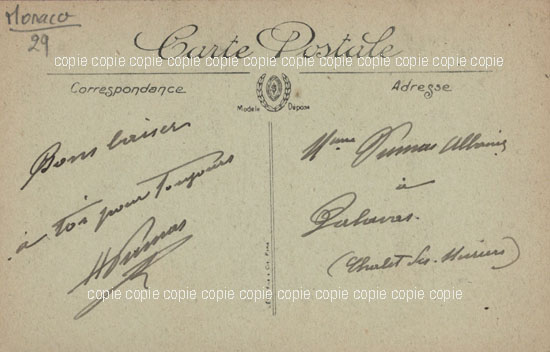 Monaco
29
Carte Postale
copie copie copie copie copie copie copie copie copie copie copie
Correspondance
Adresse
Modèle Déposé
Bons baiser
à toi pour toujours
HDumas
Mme Dumas
à
Palavas
(Chalet des
copie copie copie copie copie copie copie copie copie copie